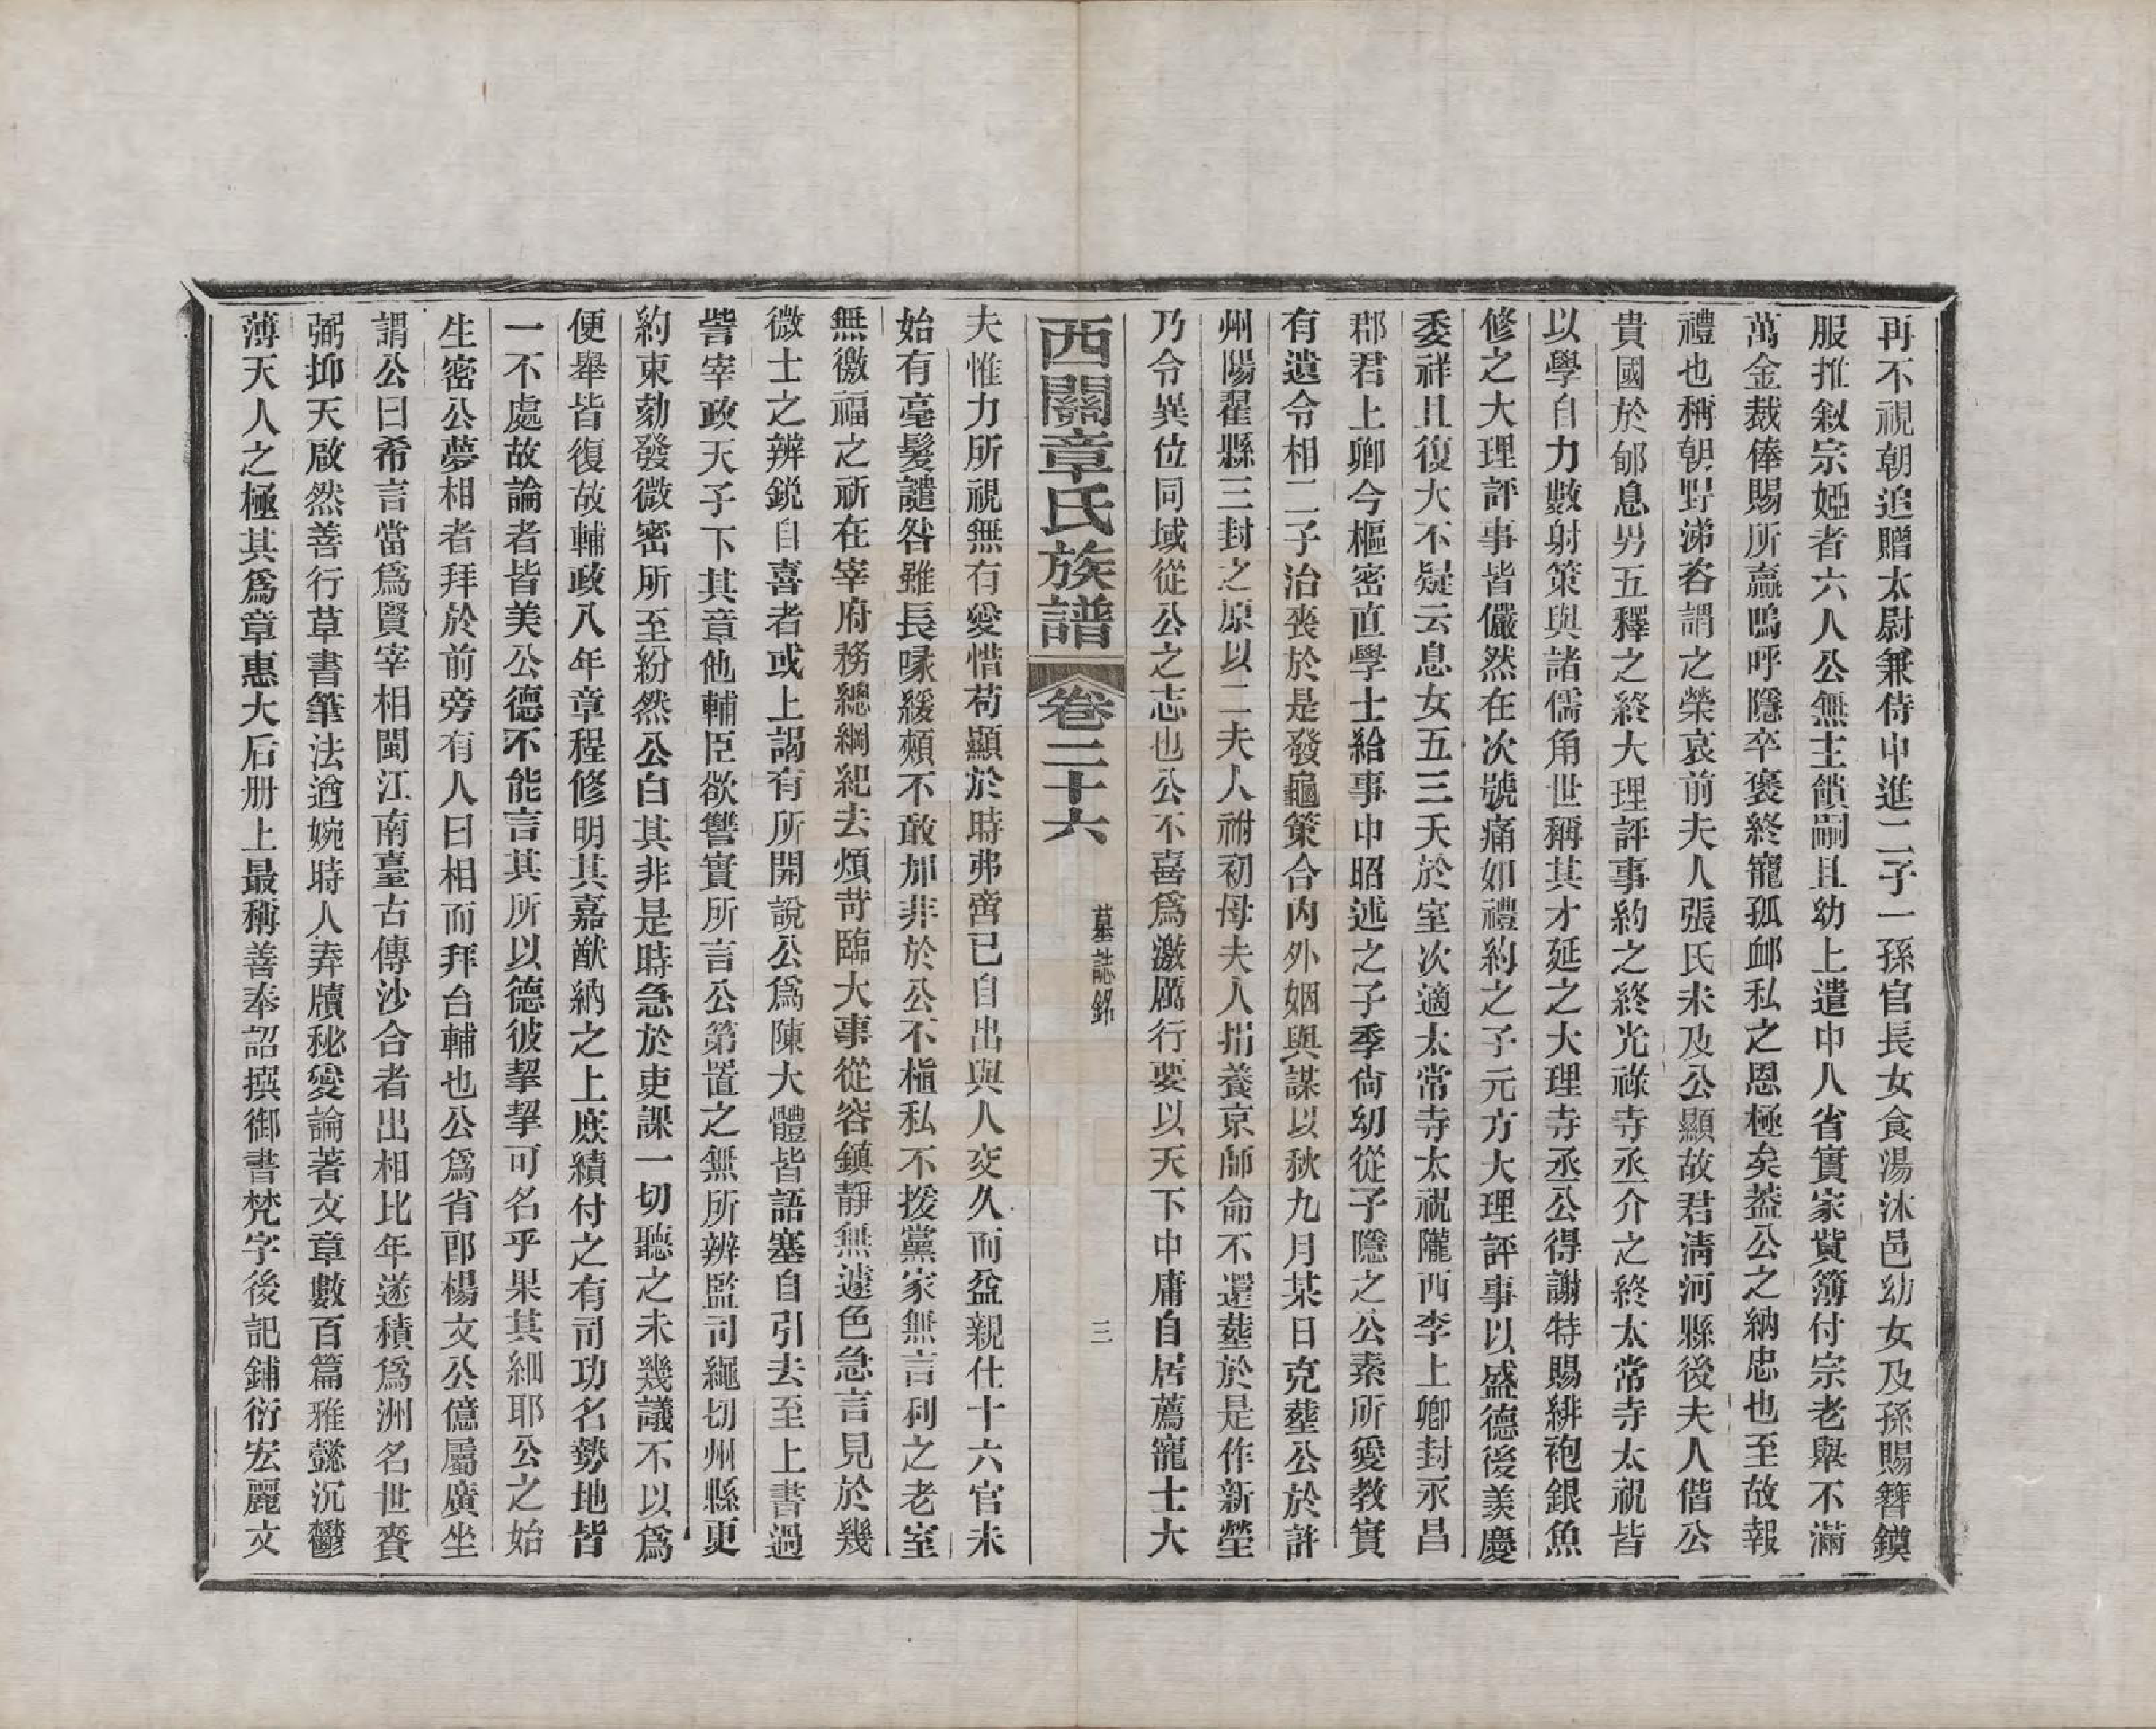 再不視朝追贈太尉兼侍中進二子一孫官長女食湯沐邑幼女及孫賜簪鏌
服推叙宗婭者六人公無主饋嗣且幼上遣中人省實家貲簿付宗老舉不滿
萬金裁俸賜所贏嗚呼隱卒褒終寵孤卹私之恩極矣葢公之納忠也至故報
禮也稱朝野涕咨謂之榮哀前夫人張氏未及公顯故君淸河縣後夫人偕公
貴國於郇息男五釋之終大理評事約之終光祿寺丞介之終太常寺太祝皆
以學自力數射策與諸儒角世稱其才延之大理寺丞公得謝特賜緋袍銀魚
修之大理評事皆儼然在次號痛如禮約之子元方大理評事以盛德後美慶
委祥且復大不疑云息女五三夭於室次適太常寺太祝隴西李上卿封永昌
郡君上卿今樞密直學士給事中昭述之子季尙幼從子隱之公素所愛教實
有遺令相二子治喪於是發龜策合內外姻與謀以秋九月某日克葬公於許
州陽翟縣三封之原以二夫人祔初母夫人捐養京師命不還葬於是作新塋
乃令異位同域從公之志也公不喜爲激厲行要以天下中庸自居薦寵士大
西關章氏族譜 卷二十六 墓誌銘 三
夫惟力所視無有愛惜苟顯於時弗啻已自出與人交久而益親仕十六官未
始有毫髮譴咎雖長喙緩頰不敢加非於公不植私不援黨家無言利之老室
無徼福之祈在宰府務總綱紀去煩苛臨大事從容鎮靜無遽色急言見於幾
微士之辨銳自喜者或上謁有所開說公爲陳大體皆語塞自引去至上書過
訾宰政天子下其章他輔臣欲讐實所言公第置之無所辨監司繩切州縣更
約束劾發微密所至紛然公白其非是時急於吏課一切聽之未幾議不以爲
便舉皆復故輔政八年章程修明其嘉猷納之上庶績付之有司功名勢地皆
一不處故論者皆美公德不能言其所以德彼挈挈可名乎果其細耶公之始
生密公夢相者拜於前旁有人曰相而拜台輔也公爲省郎楊文公億屬廣坐
謂公曰希言當爲賢宰相閩江南臺古傳沙合者出相比年遂積爲洲名世賚
弼抑天啟然善行草書筆法遒婉時人弆牘秘愛論著文章數百篇雅懿沉鬱
薄天人之極其爲章惠大后册上最稱善奉詔撰御書梵字後記鋪衍宏麗文